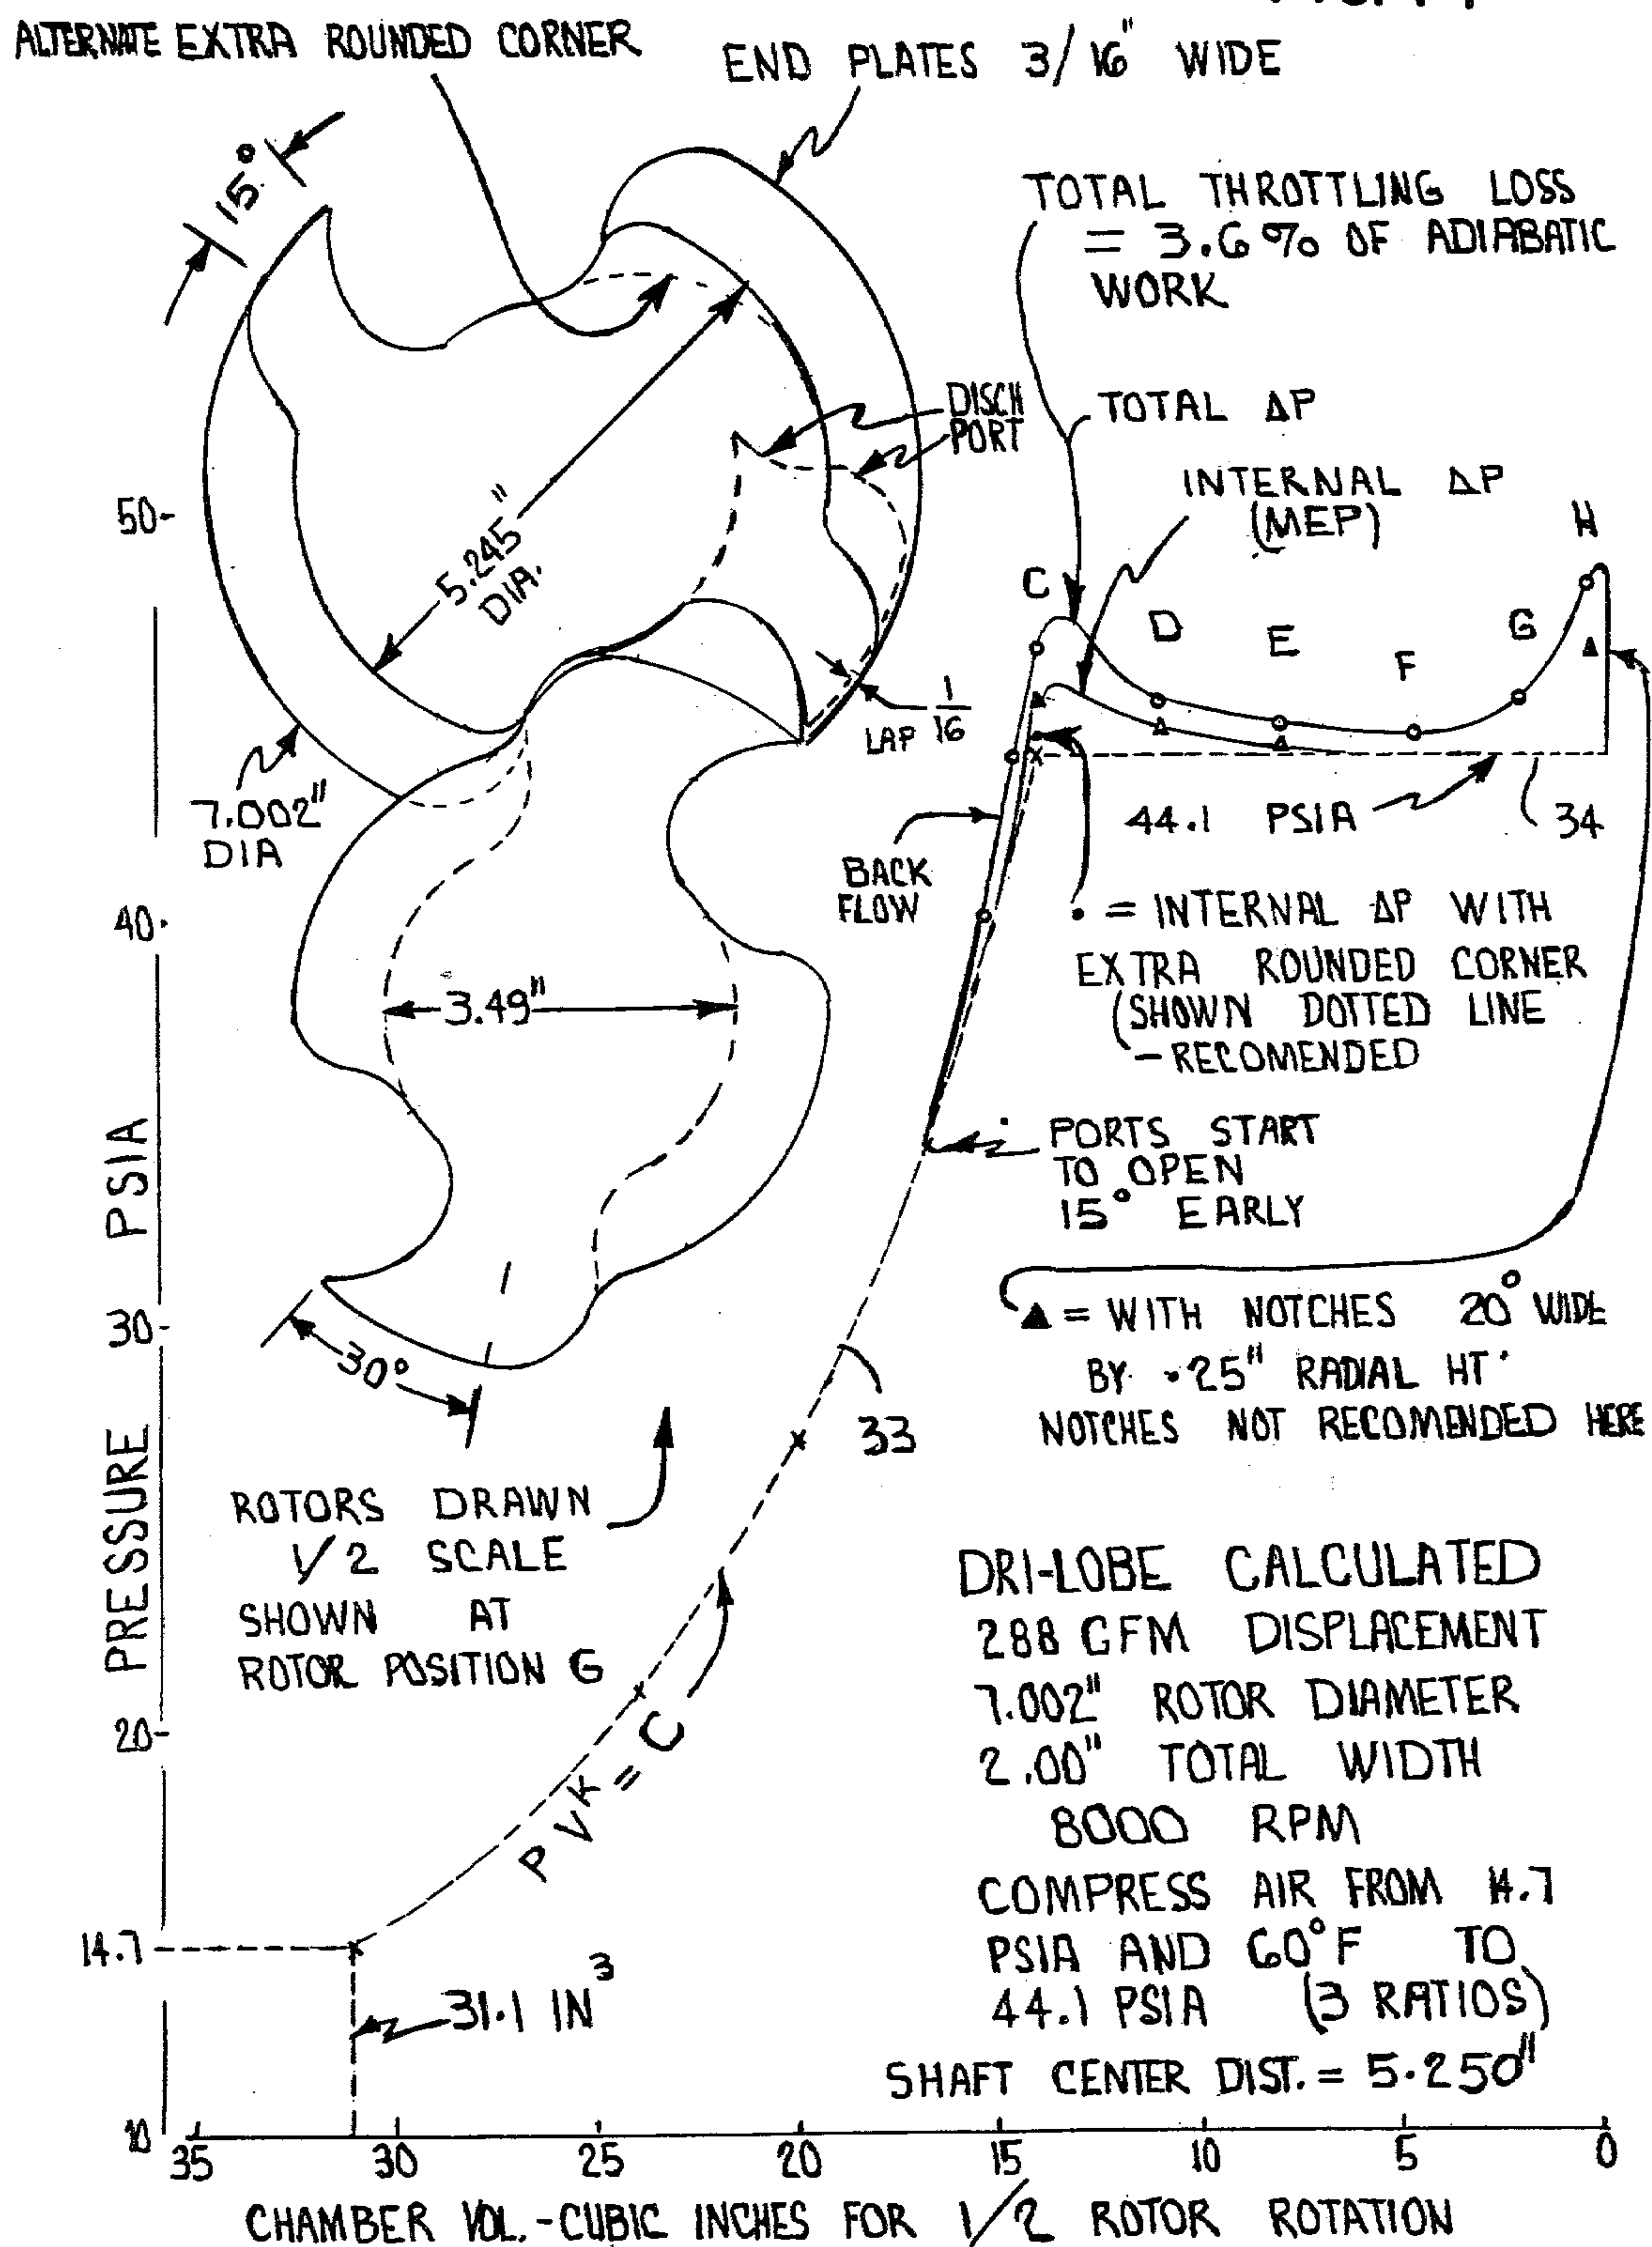 ALTERNATE EXTRA ROUNDED CORNER
END PLATES 3/16" WIDE
15°
TOTAL THROTTLING LOSS
= 3.6% OF ADIABATIC
WORK
DISCH
PORT
TOTAL ΔP
INTERNAL ΔP
(MEP)
50
5.245"
DIA.
H
C
D
E
F
G
LAP 1/16
7.002"
DIA
44.1 PSIA
34
BACK
FLOW
40
• = INTERNAL ΔP WITH
EXTRA ROUNDED CORNER
(SHOWN DOTTED LINE
- RECOMENDED
3.49"
PORTS START
TO OPEN
15° EARLY
30
30°
▲ = WITH NOTCHES 20° WIDE
BY .25" RADIAL HT.
NOTCHES NOT RECOMENDED HERE
33
PRESSURE PSIA
ROTORS DRAWN
1/2 SCALE
SHOWN AT
ROTOR POSITION G
20
PV^K = C
DRI-LOBE CALCULATED
288 CFM DISPLACEMENT
7.002" ROTOR DIAMETER
2.00" TOTAL WIDTH
8000 RPM
COMPRESS AIR FROM 14.7
PSIA AND 60°F TO
44.1 PSIA (3 RATIOS)
SHAFT CENTER DIST. = 5.250"
14.7
31.1 IN³
10
35 30 25 20 15 10 5 0
CHAMBER VOL.-CUBIC INCHES FOR 1/2 ROTOR ROTATION